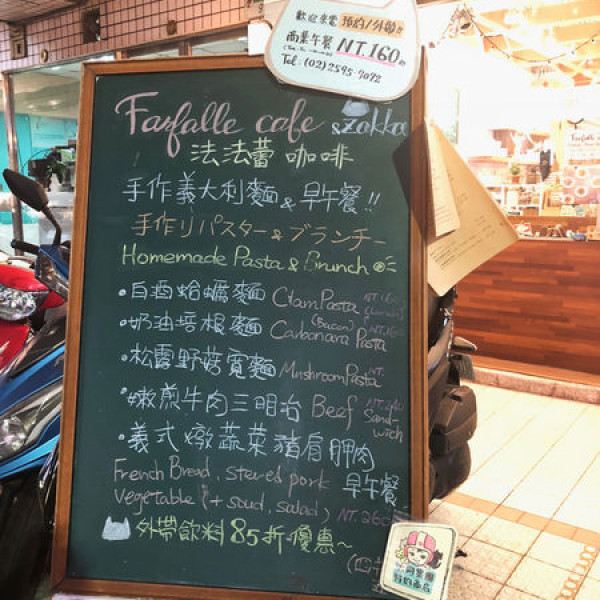 歡迎來電 預約/外帶!!
商業午餐 NT.160
Tel: (02)2595-7092
Farfalle cafe & Zakka
法法蕾 咖啡
手作義大利麵 & 早午餐!!
手作リパスター & ブランチー
Homemade Pasta & Brunch
・白酒蛤蠣麵 Clam Pasta NT.160
・奶油培根麵 Carbonara Pasta (Bacon) NT.160
・松露野菇寬麵 Mushroom Pasta NT.
・嫩煎牛肉三明治 Beef Sand-wich NT.240
・義式燉蔬菜豬肩胛肉
French Bread, stewed pork 早午餐
vegetable (+ soud, salad) NT.260
外帶飲料85折優惠~